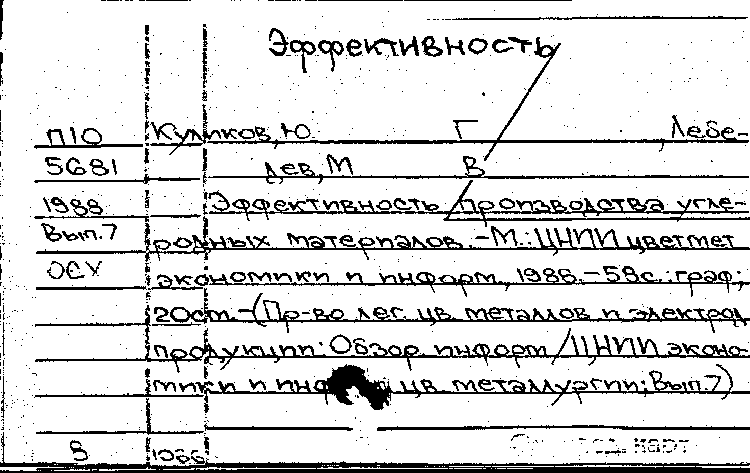 Эффективность
П10 Куликов, Ю. Г , Лебе-
5681 дев, М В
1988 Эффективность производства угле-
Вып.7 родных материалов. -М.: ЦНИИ цветмет
ОСУ экономики и информ, 1988. -58с.: граф;
20см. -(Пр-во лег. цв. металлов и электрод
продукции: Обзор. информ /ЦНИИ эконо-
мики и цв. металлургии; Вып.7)
В